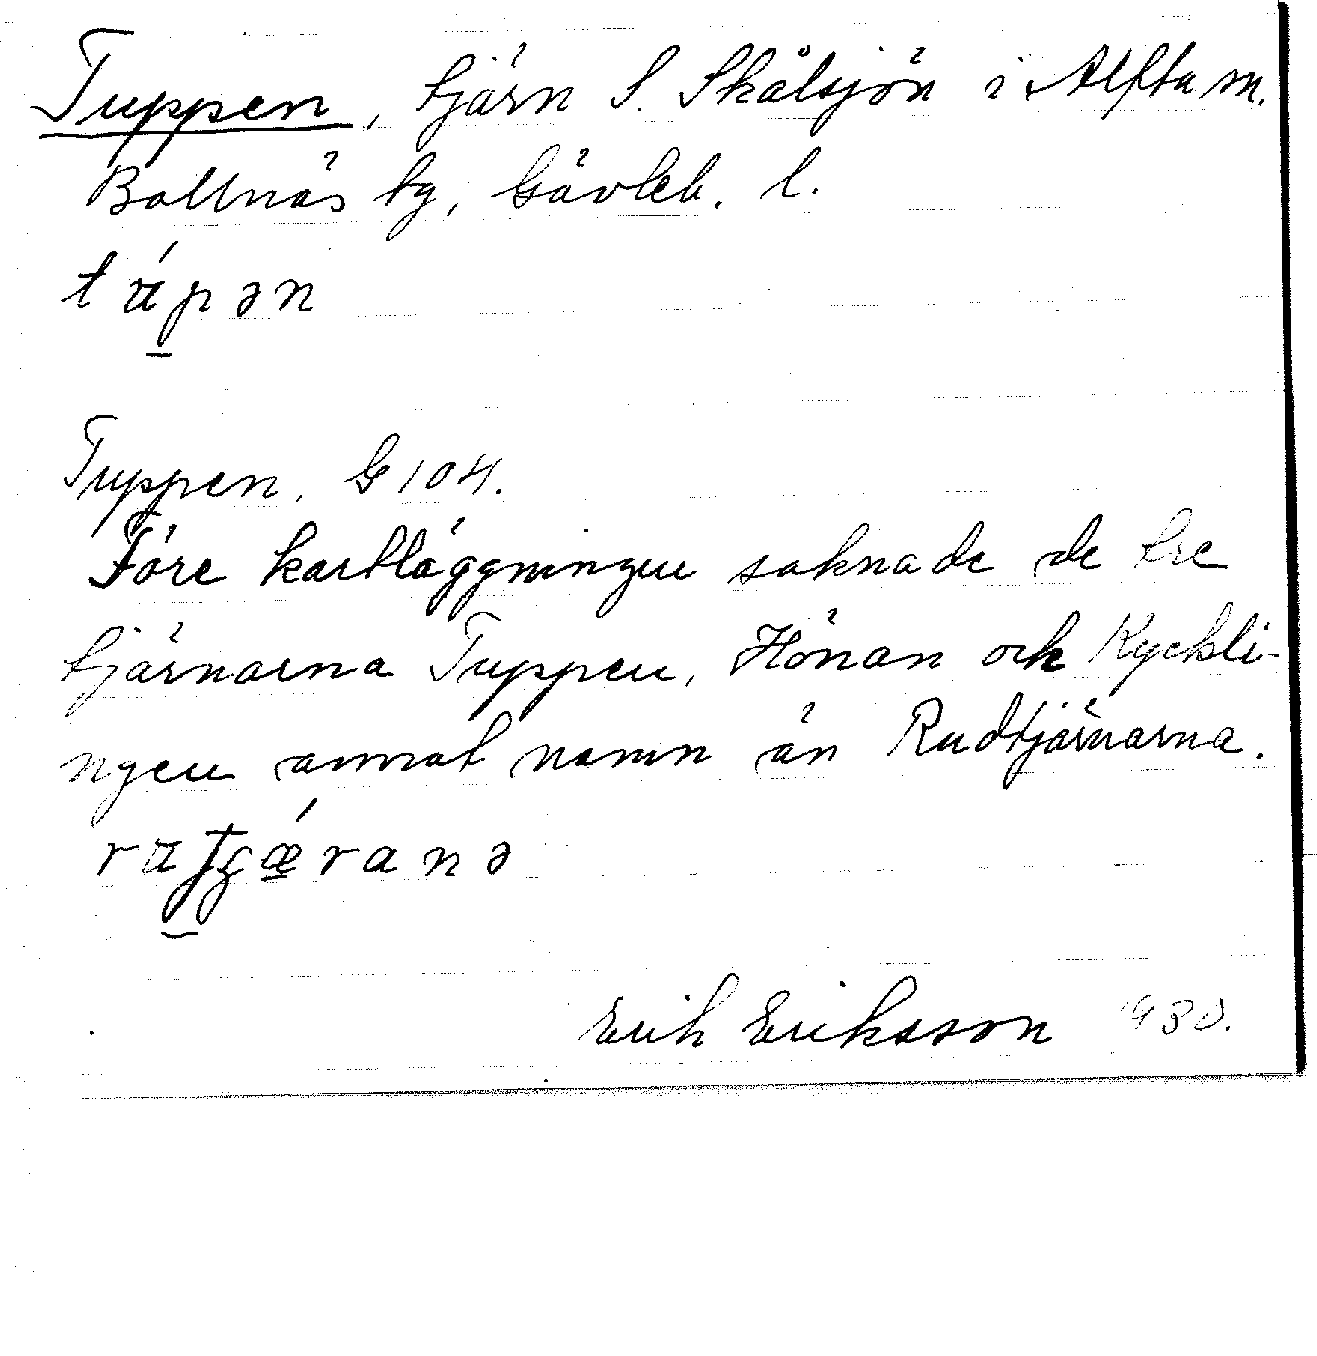 Tuppen, tjärn S. Skålsjön i Alfta sn.
Bollnäs tg, Gävleb. l.
tápən
Tuppen, G 104.
Före kartläggningen saknade de tre
tjärnarna Tuppen, Hönan och Kyckli-
ngen annat namn än Rudtjärnarna.
Erik Eriksson 1930.